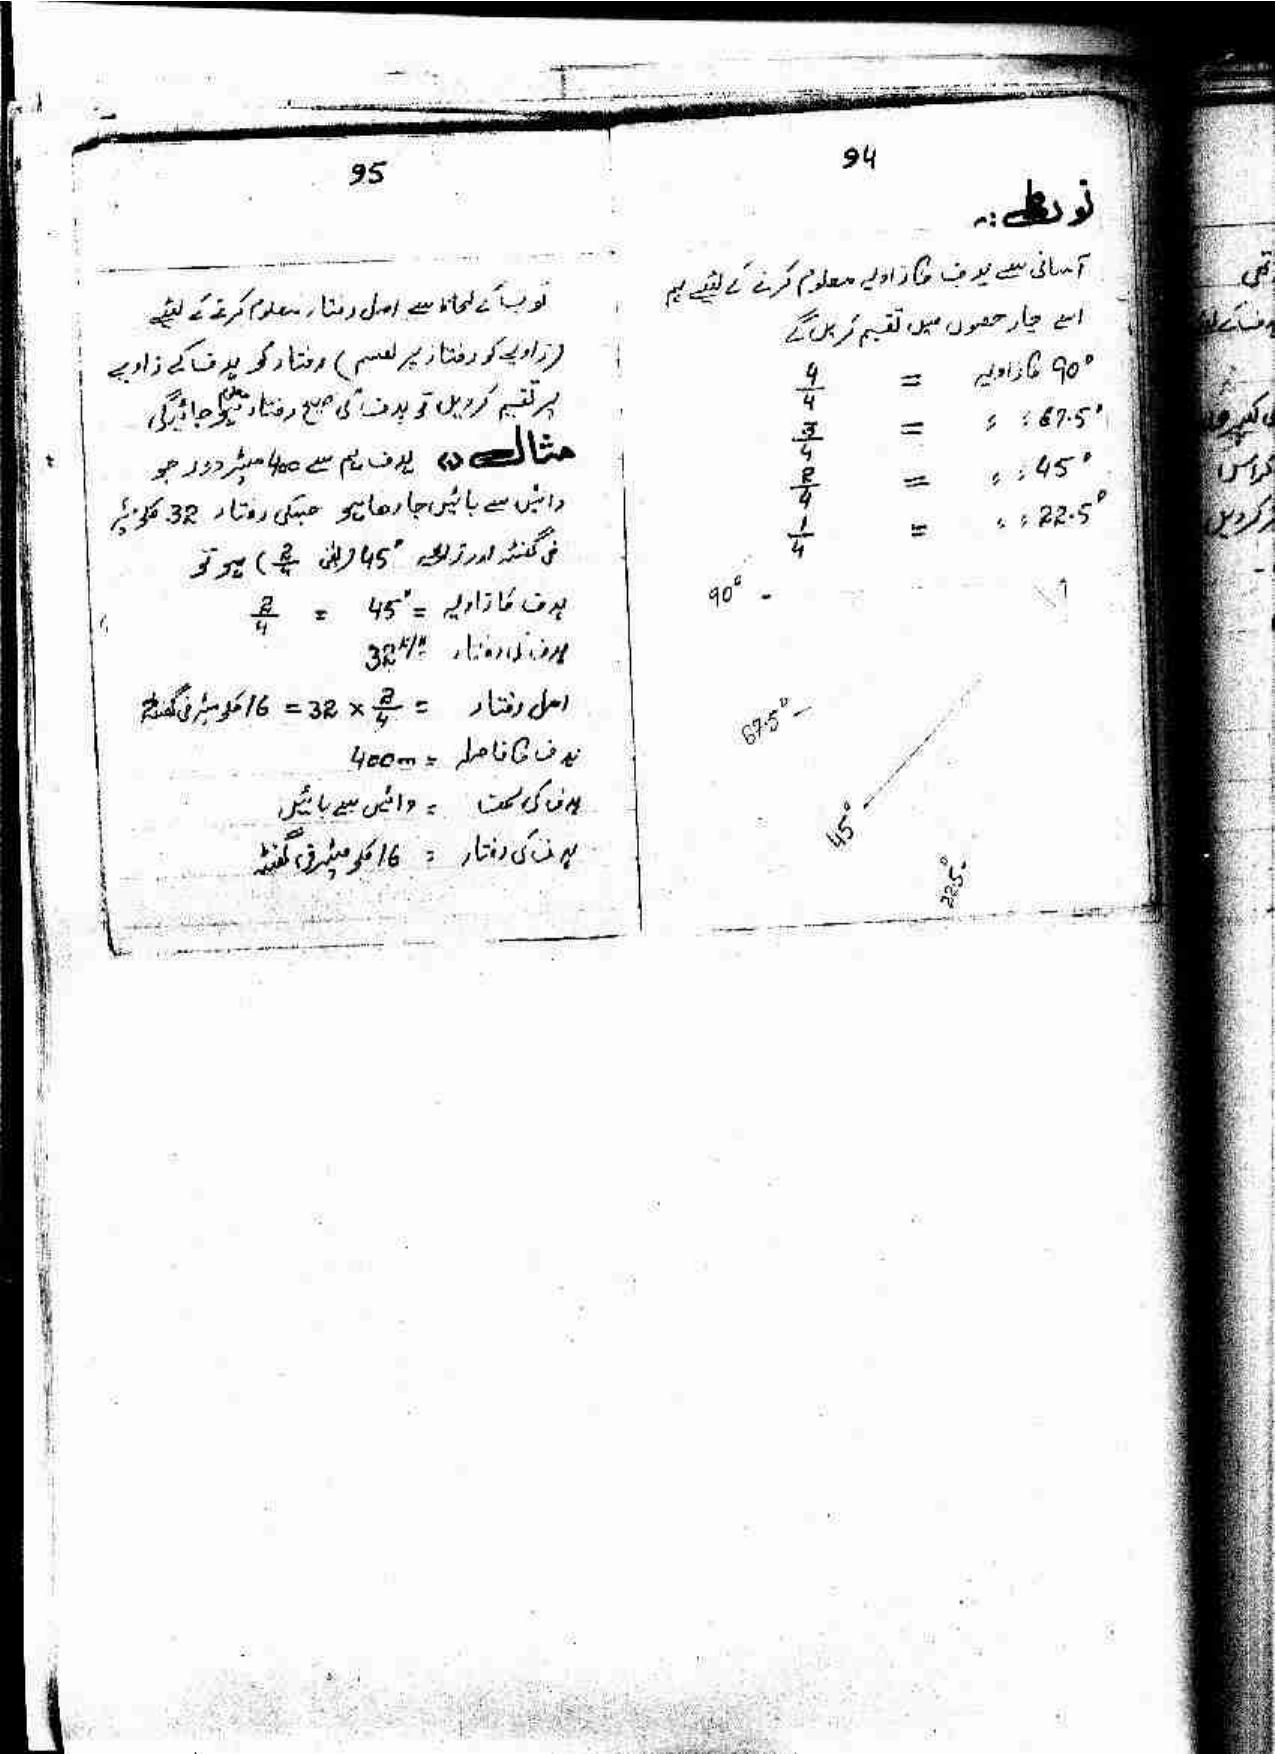 94
نوٹ :۔
آسانی سے ہدف کا زاویہ معلوم کرنے کے لئیے ہم
اسے چار حصوں میں تقسیم کریں گے
90° کا زاویہ = 4/4
67.5° : : = 3/4
45° : : = 2/4
22.5° : : = 1/4
90°
67.5°
45°
22.5°
95
کے لحاظ سے اصل رفتار معلوم کرنے کے لئیے
(زاویے کو رفتار پر تقسیم) رفتار کو ہدف کے زاویے
پر تقسیم کردیں تو ہدف کی صحیح رفتار معلوم ہو جائیگی
مثال (۱) ہدف ہم سے 400 میٹر دور جو
دائیں سے بائیں جارھا ہو جسکی رفتار 32 کلو میٹر
فی گھنٹہ اور زاویہ 45° (یعنی 2/4) ہو تو
ہدف کا زاویہ = 45° = 2/4
ہدف کی رفتار = 32 K/H
اصل رفتار = 2/4 × 32 = 16 کلو میٹر فی گھنٹہ
ہدف کا فاصلہ = 400m
ہدف کی سمت = دائیں سے بائیں
ہدف کی رفتار = 16 کلو میٹر فی گھنٹہ
تھی
ہدف کے لئے
کراس
کردیں